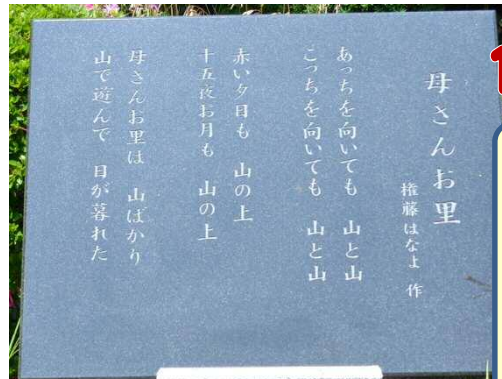 母さんお里
権藤はなよ 作
あっちを向いても 山と山
こっちを向いても 山と山
赤い夕日も 山の上
十五夜お月も 山の上
母さんお里は 山ばかり
山で遊んで 日が暮れた